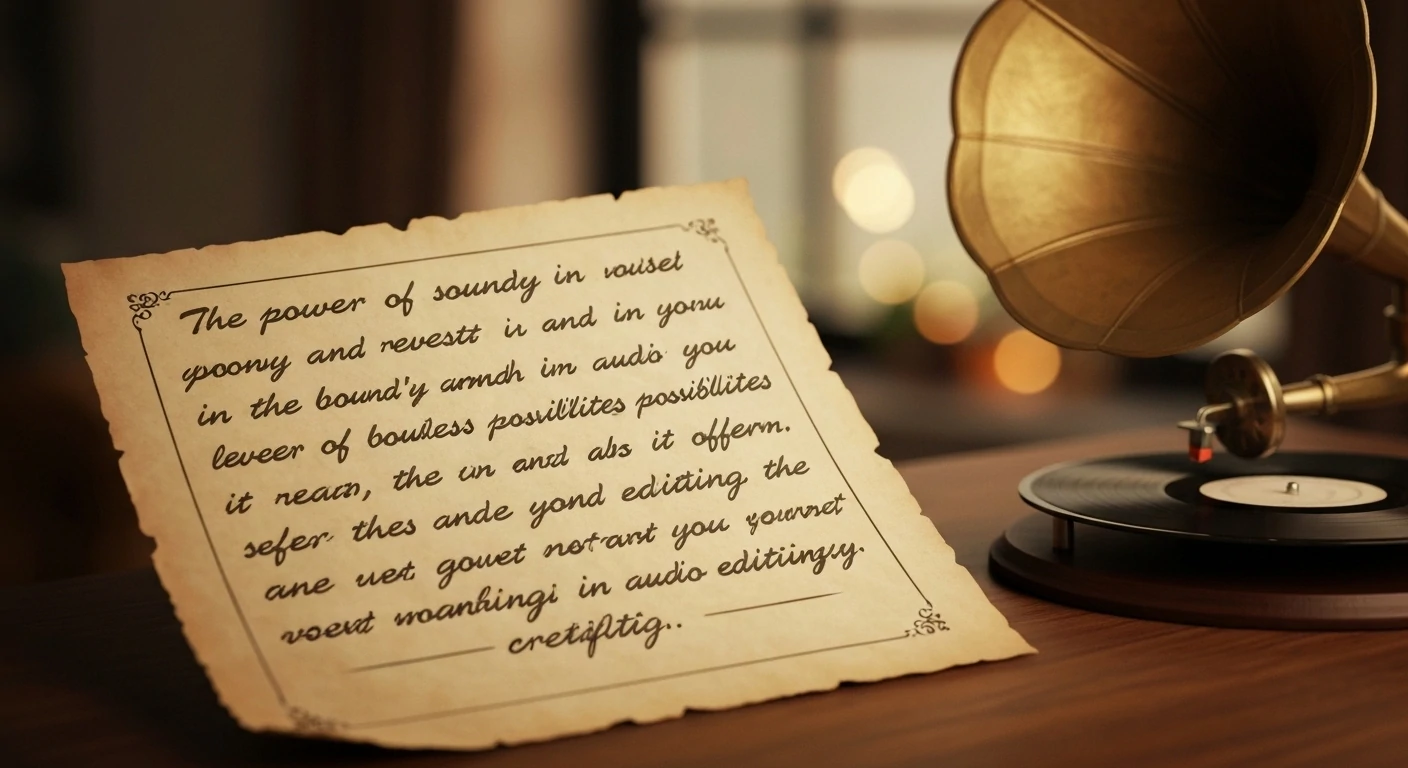 The power of soundy in vouset
yoony and revestt in and in yonu
in the bound'y armdh im audio you
leveer of boudless possililites possibllites
it nearn, the un and abs it offerm.
sefer thes ande yond editting the
ane uet gouet notrant you yournet
voext moanhingi in audio editiingy.